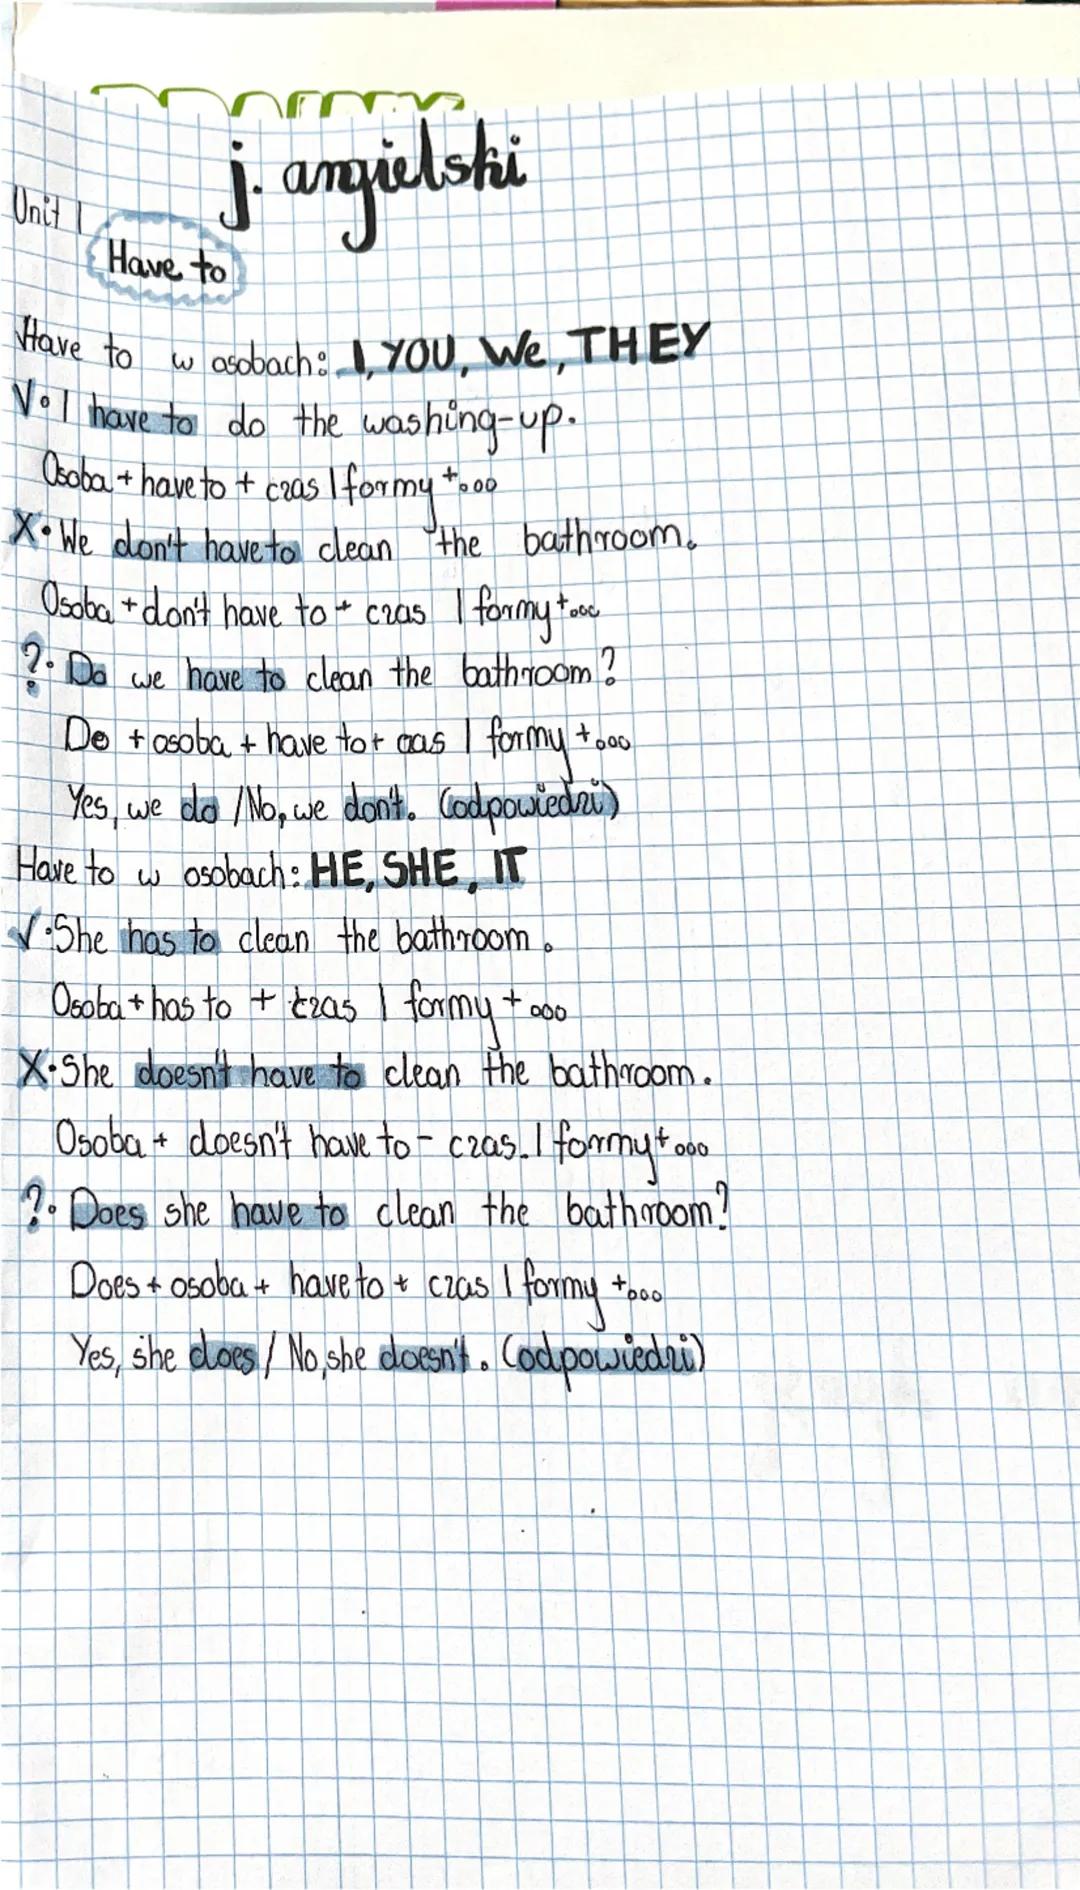 j. angielski
Unit 1
Have to
Have to w osobach: I, YOU, We, THEY
V•I have to do the washing-up.
Osoba + have to + czas I formy +...
X•We don't have to clean the bathroom.
Osoba + don't have to + czas I formy +...
?• Do we have to clean the bathroom?
Do + osoba + have to + czas I formy +...
Yes, we do / No, we don't. (odpowiedzi)
Have to w osobach: HE, SHE, IT
√•She has to clean the bathroom.
Osoba + has to + czas I formy + ...
X•She doesn't have to clean the bathroom.
Osoba + doesn't have to - czas. I formy + ...
?• Does she have to clean the bathroom?
Does + osoba + have to + czas I formy +...
Yes, she does / No, she doesn't. (odpowiedzi)